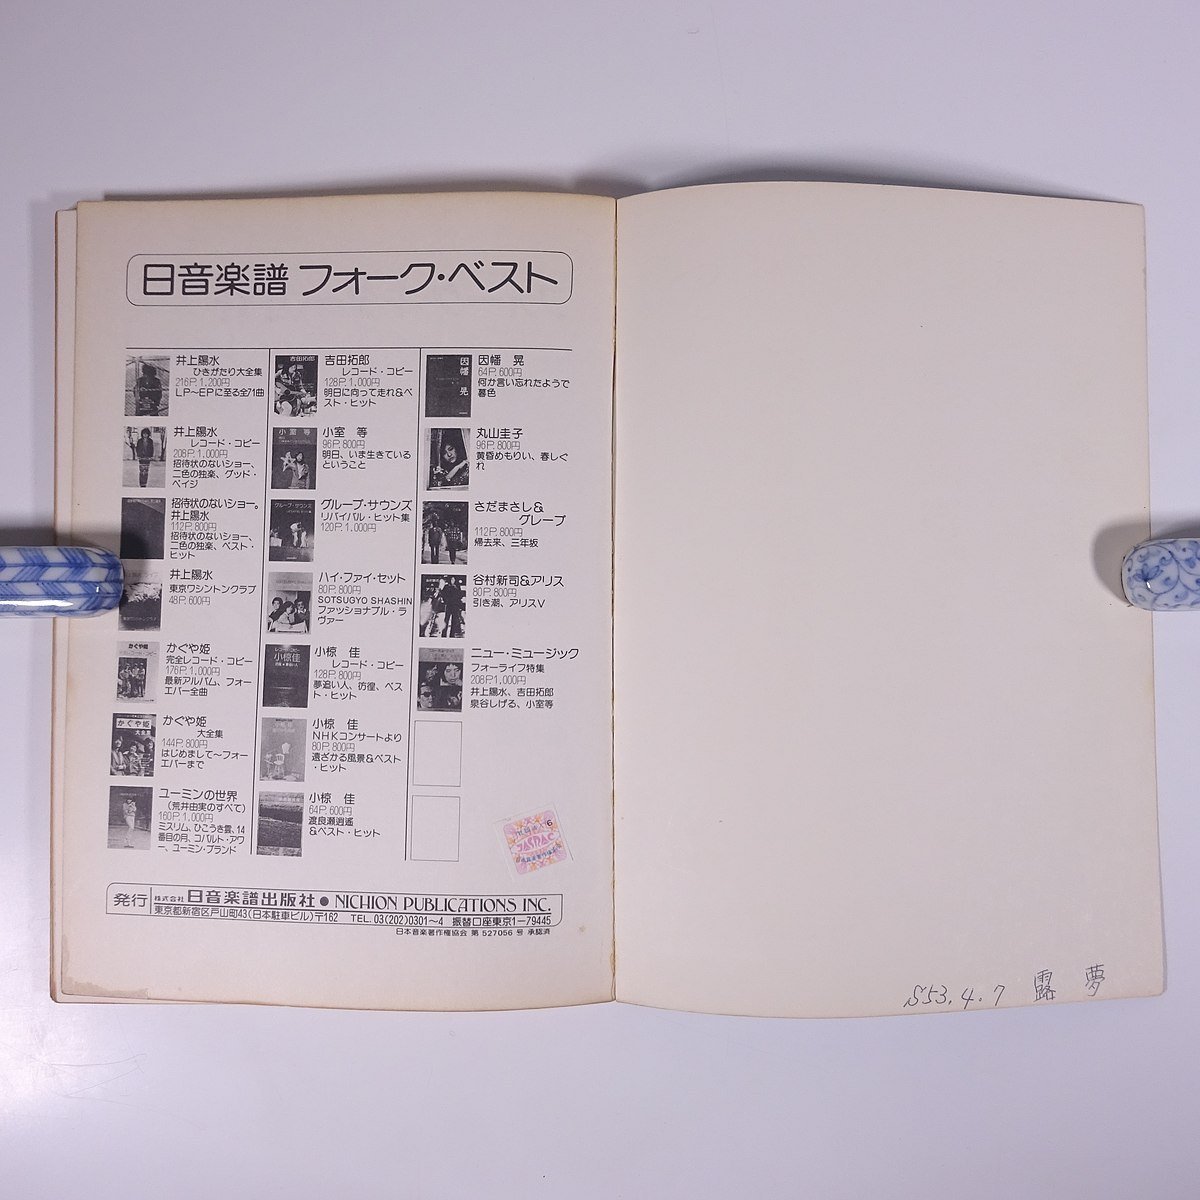 日音楽譜 フォーク・ベスト
井上陽水
ひきがたり大全集
216P. 1,200円
LP〜EPに至る全71曲
井上陽水
レコード・コピー
208P. 1,000円
招待状のないショー、
二色の独楽、グッド・
ペイジ
招待状のないショー。
井上陽水
112P. 800円
招待状のないショー、
二色の独楽、ベスト・
ヒット
井上陽水
東京ワシントンクラブ
48P. 600円
かぐや姫
完全レコード・コピー
176P. 1,000円
最新アルバム、フォー
エバー全曲
かぐや姫
大全集
144P. 800円
はじめまして〜フォー
エバーまで
ユーミンの世界
(荒井由実のすべて)
160P. 1,000円
ミスリム、ひこうき雲、14
番目の月、コバルト・アワ
ー、ユーミン・ブランド
吉田拓郎
レコード・コピー
128P. 1,000円
明日に向って走れ&ベ
スト・ヒット
小室 等
96P. 800円
明日、いま生きている
ということ
グループ・サウンズ
リバイバル・ヒット集
120P. 1,000円
ハイ・ファイ・セット
80P. 800円
SOTSUGYO SHASHIN
ファッショナブル・ラ
ヴァー
小椋 佳
レコード・コピー
128P. 800円
夢追い人、彷徨、ベス
ト・ヒット
小椋 佳
NHKコンサートより
80P. 800円
遠ざかる風景&ベスト
・ヒット
小椋 佳
64P. 600円
渡良瀬逍遙
&ベスト・ヒット
因幡 晃
64P. 600円
何か言い忘れたようで
暮色
丸山圭子
96P. 800円
黄昏めもりい、春しぐ
れ
さだまさし&
グレープ
112P. 800円
帰去来、三年坂
谷村新司&アリス
80P. 800円
引き潮、アリスV
ニュー・ミュージック
フォーライフ特集
208P. 1,000円
井上陽水、吉田拓郎
泉谷しげる、小室等
JASRAC
発行 株式会社 日音楽譜出版社 ● NICHION PUBLICATIONS INC.
東京都新宿区戸山町43(日本駐車ビル)〒162 TEL. 03(202)0301〜4 振替口座東京1−79445
日本音楽著作権協会 第 527056 号 承認済
S53. 4. 7 露 夢